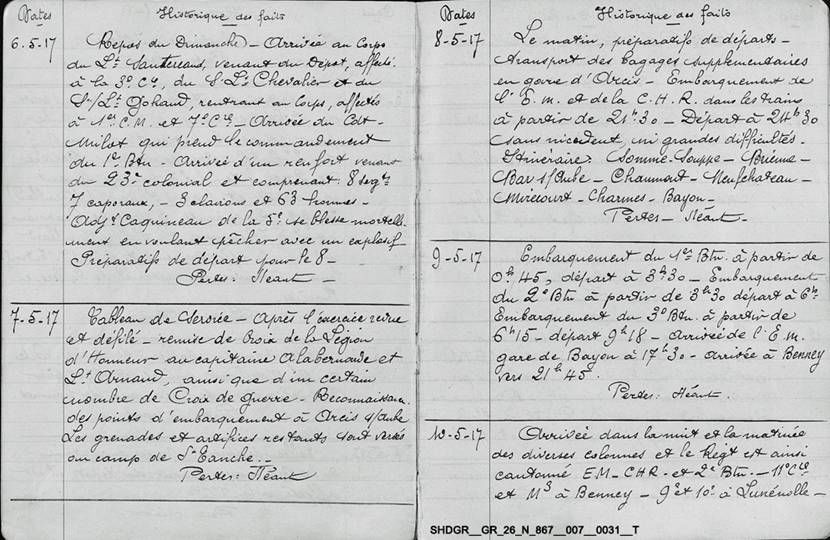 Dates Historique des faits
6.5.17 Repos du Dimanche - Arrivée au Corps
du Lt Sautereaus, venant du Dépôt, affecté
à la 3e Cie, du S/Lt Chevalier et du
S/Lt Gohaud, rentrant au Corps, affectés
à 1ère C.M. et 7e Cie - Arrivée du Cdt
Milot qui prend le commandement
du 1er Btn - Arrivée d'un renfort venant
du 23e colonial et comprenant 8 sergts
7 caporaux, - 3 clairons et 63 hommes -
Adjt Caquineau de la 5e se blesse mortelle-
ment en voulant pêcher avec un explosif
Préparatifs de départ pour le 8 -
Pertes : Néant -
7-5-17 Tableau de Service - Après l'exercice revue
et défilé - remise de Croix de la Légion
d'Honneur au capitaine Alabernarde et
Lt Arnaud, ainsi que d'un certain
nombre de Croix de guerre - Reconnaissance
des points d'embarquement à Arcis s/Aube
Les grenades et artifices restants sont versés
au camp de Ste Tanche. -
Pertes : Néant
Dates Historique des faits
8-5-17 Le matin, préparatifs de départs -
transport des bagages supplémentaires
en gare d'Arcis - Embarquement de
l'E.M. et de la C.H.R. dans les trains
à partir de 21h30 - Départ à 24h30
sans incident, ni grandes difficultés -
Itinéraire : Somme-Souppe - Brienne -
Bar s/Aube - Chaumont - Neufchateau -
Mirecourt - Charmes - Bayon -
Pertes - Néant -
9-5-17 Embarquement du 1er Btn. à partir de
0h45, départ à 3h30 - Embarquement
du 2e Btn à partir de 3h30 départ à 6h.
Embarquement du 3e Btn. à partir de
6h15 - départ 9h18 - arrivée de l'E.M.
gare de Bayon à 17h30 - arrivée à Benney
vers 21h45.
Pertes : Néant.
10-5-17 Arrivée dans la nuit et la matinée
des diverses colonnes et le Régt est ainsi
cantonné EM - CHR - et 2e Btn. - 11e Cie
et M3 à Benney - 9e et 10e à Lunénolle -
SHDGR__GR_26_N_867__007__0031__T